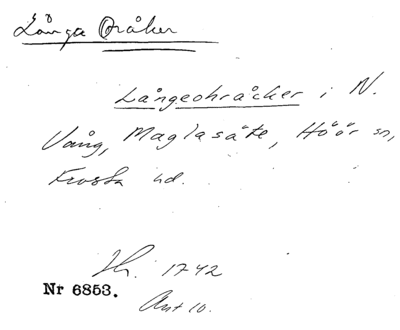 Långa Oråker
Långeohråcker i N.
Vång, Maglasäte, Höör sn,
Frosta hd.
Lh. 1742
Nr 6853.
Akt 10.